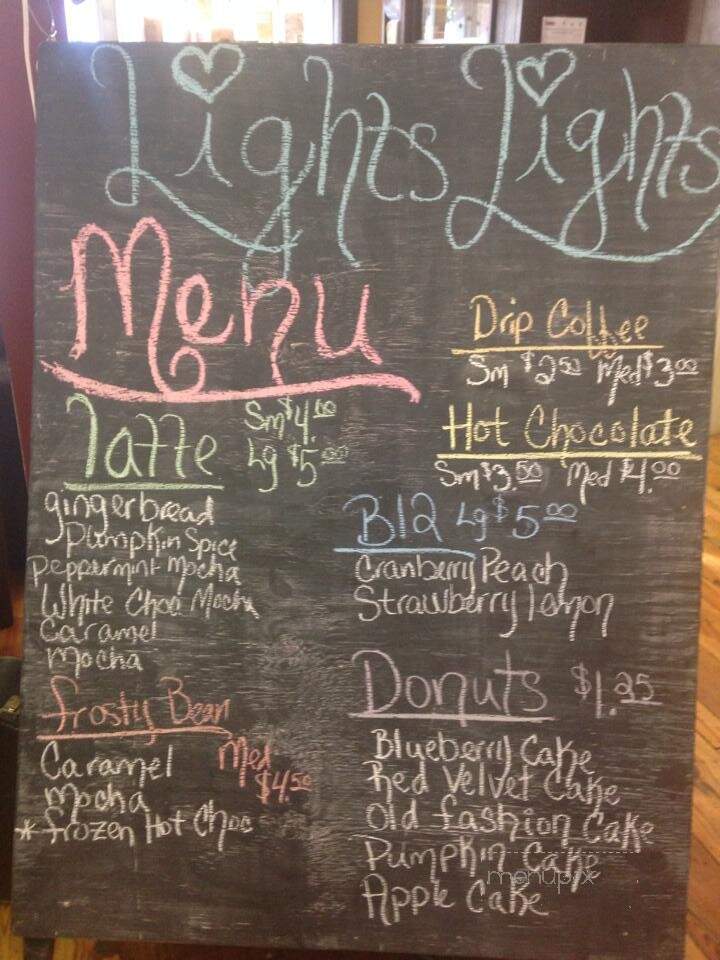 Lights Lights
Menu
Latte Sm $4.00
Lg $5.00
gingerbread
Pumpkin Spice
Peppermint Mocha
White Choc Mocha
Caramel
Mocha
Frosty Bean
Med $4.50
Caramel
Mocha
* Frozen Hot Choc
Drip Coffee
Sm $2.50 Med $3.00
Hot Chocolate
Sm $3.00 Med $4.00
B12 Lg $5.00
Cranberry Peach
Strawberry lemon
Donuts $1.25
Blueberry Cake
Red Velvet Cake
Old fashion Cake
Pumpkin Cake
Apple Cake
menupix